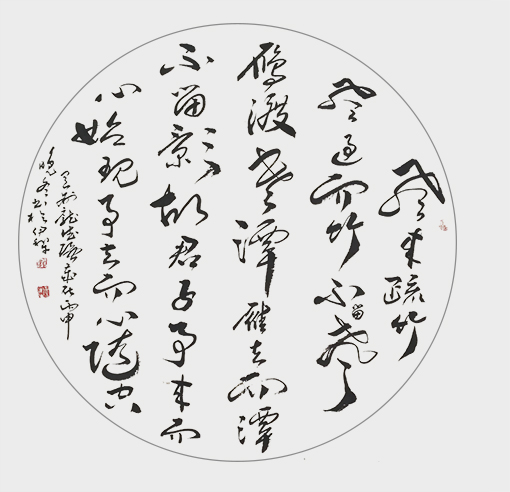 風來疏竹
風過而竹不留聲
雁渡寒潭雁去而潭
不留影故君子事來而
心始現事去而心隨空
丙申
晚冬書於